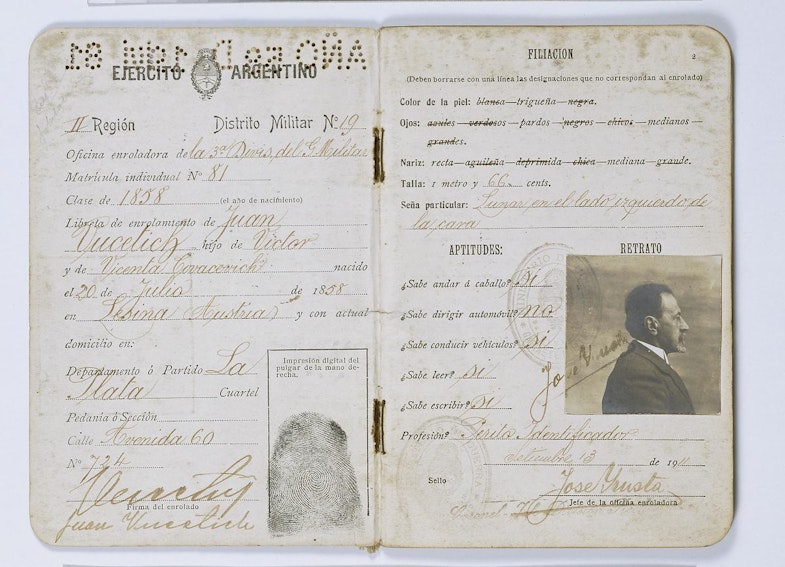 EJERCITO ARGENTINO
II Región Distrito Militar Nº 19
Oficina enroladora de la 3ª Divis. del G. Militar
Matrícula individual Nº 81
Clase de 1858 (el año de nacimiento)
Libreta de enrolamiento de Juan
Vucetich hijo de Victor
y de Vicenta Covacevich nacido
el 20 de Julio de 1858
en Lesina Austria y con actual
domicilio en:
Departamento ó Partido La
Plata Cuartel
Pedanía ó Sección
Calle Avenida 60
Nº 724
Firma del enrolado
Juan Vucetich
Impresión digital del
pulgar de la mano de-
recha.
FILIACION
2
(Deben borrarse con una línea las designaciones que no correspondan al enrolado)
Color de la piel: blanca—trigueña—negra.
Ojos: azules—verdosos—pardos—negros—chicos—medianos—
grandes.
Nariz: recta—aguileña—deprimida—chica—mediana—grande.
Talla: 1 metro y 66 cents.
Seña particular: Lunar en el lado izquierdo de
la cara
APTITUDES: RETRATO
¿Sabe andar á caballo? Si
¿Sabe dirigir automóvil? no
¿Sabe conducir vehículos? Si
¿Sabe leer? Si
¿Sabe escribir? Si
Profesión? Perito Identificador
Setiembre 13 de 1911
Sello
Jefe de la oficina enroladora